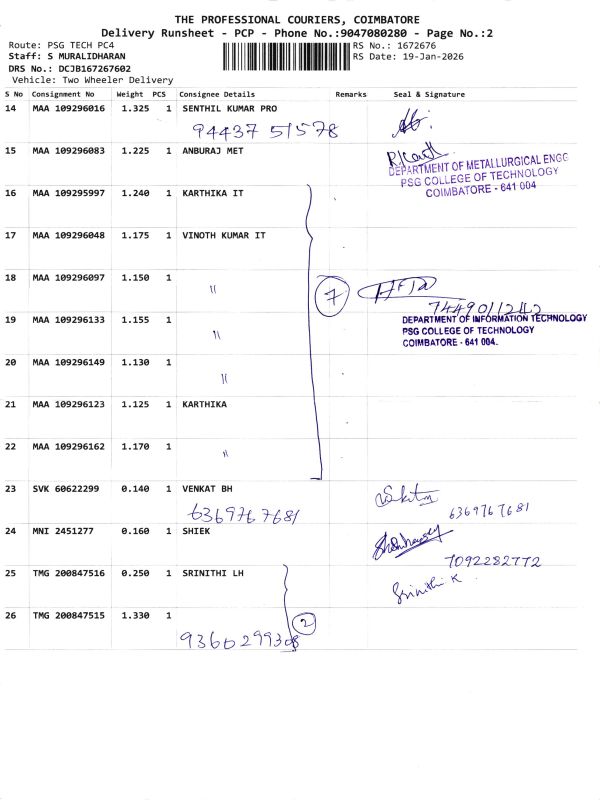 THE PROFESSIONAL COURIERS, COIMBATORE
Delivery Runsheet - PCP - Phone No.:9047080280 - Page No.:2
Route: PSG TECH PC4
RS No.: 1672676
Staff: S MURALIDHARAN
RS Date: 19-Jan-2026
DRS No.: DCJB167267602
Vehicle: Two Wheeler Delivery
S No Consignment No Weight PCS Consignee Details Remarks Seal & Signature
14 MAA 109296016 1.325 1 SENTHIL KUMAR PRO
94437 51578
15 MAA 109296083 1.225 1 ANBURAJ MET
DEPARTMENT OF METALLURGICAL ENGG
PSG COLLEGE OF TECHNOLOGY
COIMBATORE - 641 004
16 MAA 109295997 1.240 1 KARTHIKA IT
17 MAA 109296048 1.175 1 VINOTH KUMAR IT
18 MAA 109296097 1.150 1 "
7
7449011242
19 MAA 109296133 1.155 1 "
DEPARTMENT OF INFORMATION TECHNOLOGY
PSG COLLEGE OF TECHNOLOGY
COIMBATORE - 641 004.
20 MAA 109296149 1.130 1 "
21 MAA 109296123 1.125 1 KARTHIKA
22 MAA 109296162 1.170 1 "
23 SVK 60622299 0.140 1 VENKAT BH
6369767681
6369767681
24 MNI 2451277 0.160 1 SHIEK
7092282772
25 TMG 200847516 0.250 1 SRINITHI LH
Srinithi K
26 TMG 200847515 1.330 1
2
9360299308